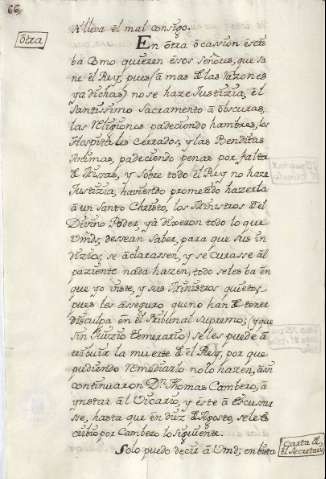 66
otra
lleva el mal consigo.
En otra ocassion esta
ba Como quieren essos señores, que sa
ne el Rey, pues (a mas de las razones
ya dichas) no se haze Justizia, el
Santissimo Sacramento a obscuras,
las Religiones padeciendo hambres, los
Hospitales Cerrados, y las Benditas
Animas, padeciendo penas por falta
de Missas, y sobre todo el Rey no haze
Justizia, haviendo prometido hazerla
a un Santo Christo, los Ministros del
Divino Poder, ya dixeron todo lo que
Vmds. dessean saber, para que sus in
dizios se aclarassen, y se curasse al
paziente nada hazen, todo se les ba en
que yo inste, y sus Ministros quietos,
pues les asseguro que no han de tener
disculpa en el tribunal Supremo; (y que
sin Juizio temerario) se les puede a
tribuir la muerte de el Rey, por que
pudiendo remediarlo no lo hazen, assi
continuaron Dn. Thomas Cambero, a
ynstar al Vicario, y este a escusar
se, hasta que en diez de Agosto, se le es
cribio por Cambero lo siguiente.
Solo puedo decir a Vmd; en bista
carta de
el Secretario